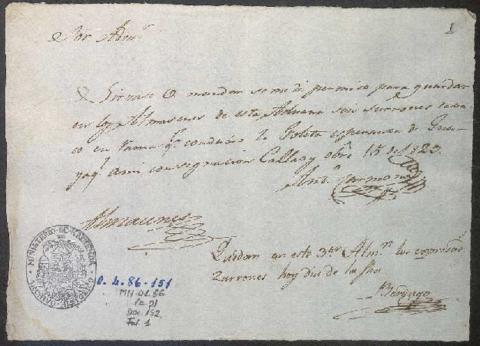 1
Sor Admr
Sirvase V mandar se me dé permiso para guardar
en los Almasenes de esta Aduana seis Surrones tava
co en rama qe condujo la Goleta esperansa de Guaya
yaql a mi consignacion Callao y 15 de 1823
Anto
Almacenes
Quedan en este 3er Almn los expresados
Zurrones hoy dia de la fha
MINISTERIO DE HACIENDA
O.L.86-151
MH-OL 86
Doc. 152
Fol. 1